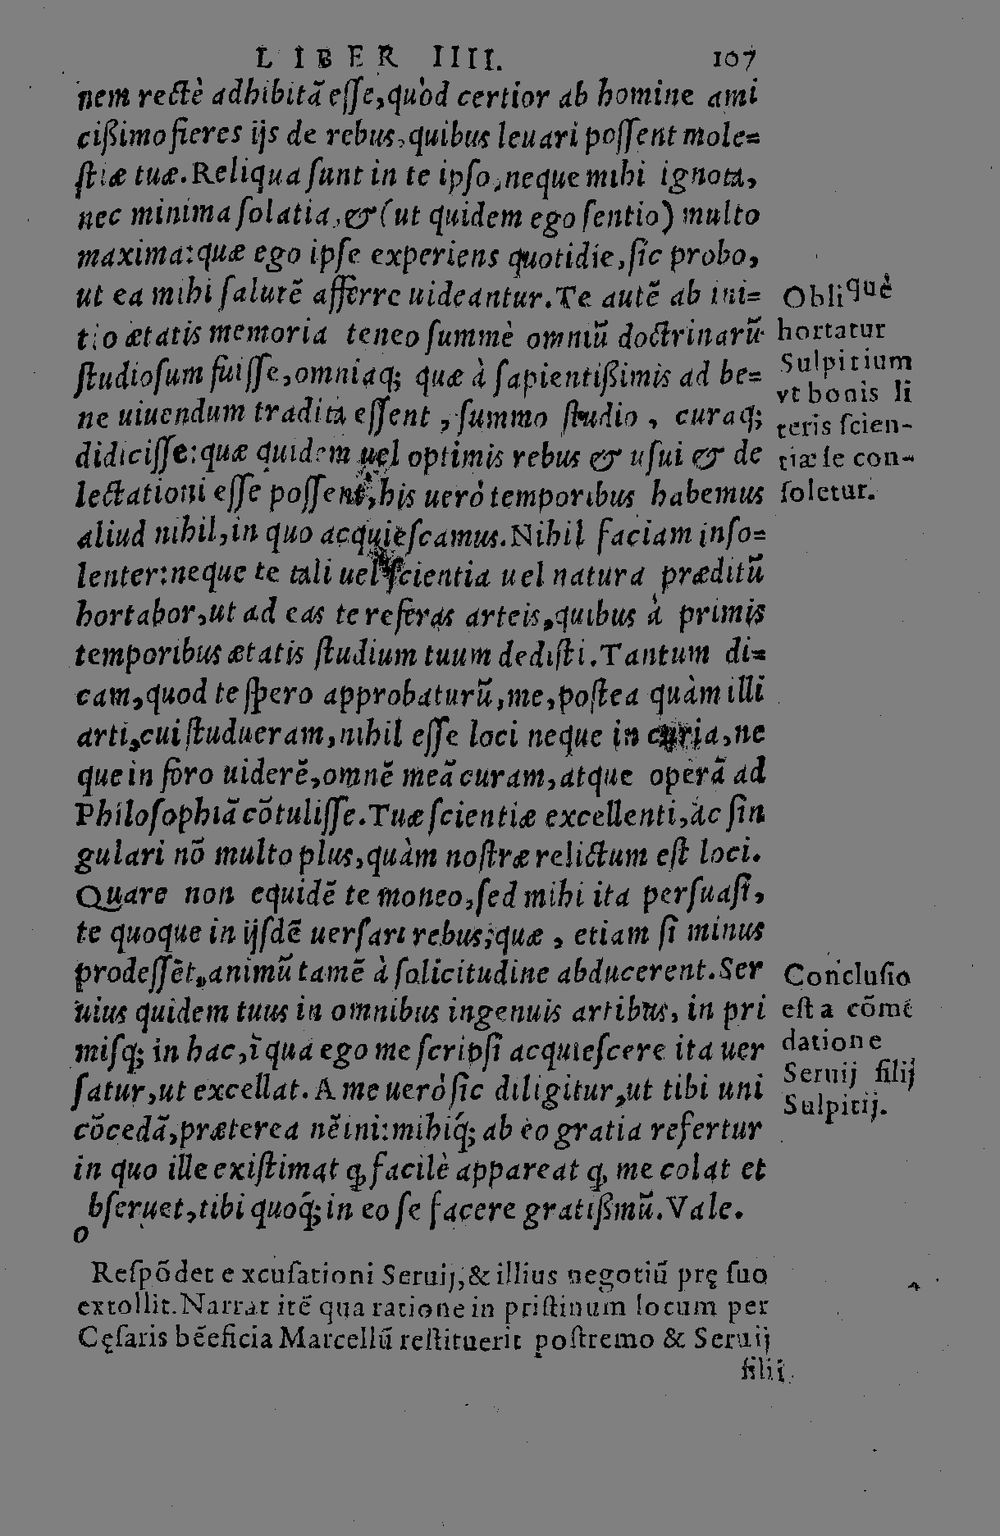 LIBER IIII. 107
nem rectè adhibitã esse, quòd certior ab homine ami
cißimo fieres ijs de rebus, quibus leuari possent mole=
stiæ tuæ. Reliqua sunt in te ipso, neque mihi ignota,
nec minima solatia, & (ut quidem ego sentio) multo
maxima: quæ ego ipse experiens quotidie, sic probo,
ut ea mihi salutẽ afferre uideantur. Te autẽ ab ini=
tio ætatis memoria teneo summè omniũ doctrinarũ
studiosum fuisse, omniaq; quæ à sapientißimis ad be=
ne uiuendum tradita essent, summo studio, curaq;
didicisse: quæ quidem uel optimis rebus & usui & de
lectationi esse possent, his uerò temporibus habemus
aliud nihil, in quo acquiescamus. Nihil faciam inso=
lenter: neque te tali uel scientia uel natura præditũ
hortabor, ut ad eas te referas arteis, quibus à primis
temporibus ætatis studium tuum dedisti. Tantum di=
cam, quod te spero approbaturũ, me, postea quàm illi
arti, cui studueram, nihil esse loci neque in curia, ne
que in foro uiderẽ, omnẽ meã curam, atque operã ad
Philosophiã cõtulisse. Tuæ scientiæ excellenti, ac sin
gulari nõ multo plus, quàm nostræ relictum est loci.
Quare non equidẽ te moneo, sed mihi ita persuasi,
te quoque in ijsdẽ uersari rebus; quæ, etiam si minus
prodessẽt, animũ tamẽ à solicitudine abducerent. Ser
uius quidem tuus in omnibus ingenuis artibus, in pri
misq; in hac, ĩ qua ego me scripsi acquiescere ita uer
satur, ut excellat. A me uerò sic diligitur, ut tibi uni
cõcedã, præterea nẽini: mihiq́; ab eo gratia refertur
in quo ille existimat ꝙ facilè appareat ꝙ me colat et
obseruet, tibi quoq́; in eo se facere gratißimũ. Vale.
Obliquè
hortatur
Sulpitium
vt bonis li
teris scien-
tiæ se con-
soletur.
Conclusio
est a cõmẽ
datione
Seruij filij
Sulpitij.
Respõdet excusationi Seruij, & illius negotiũ prę suo
extollit. Narrat itẽ qua ratione in pristinum locum per
Cęsaris bẽeficia Marcellũ restituerit postremo & Seruij
filii